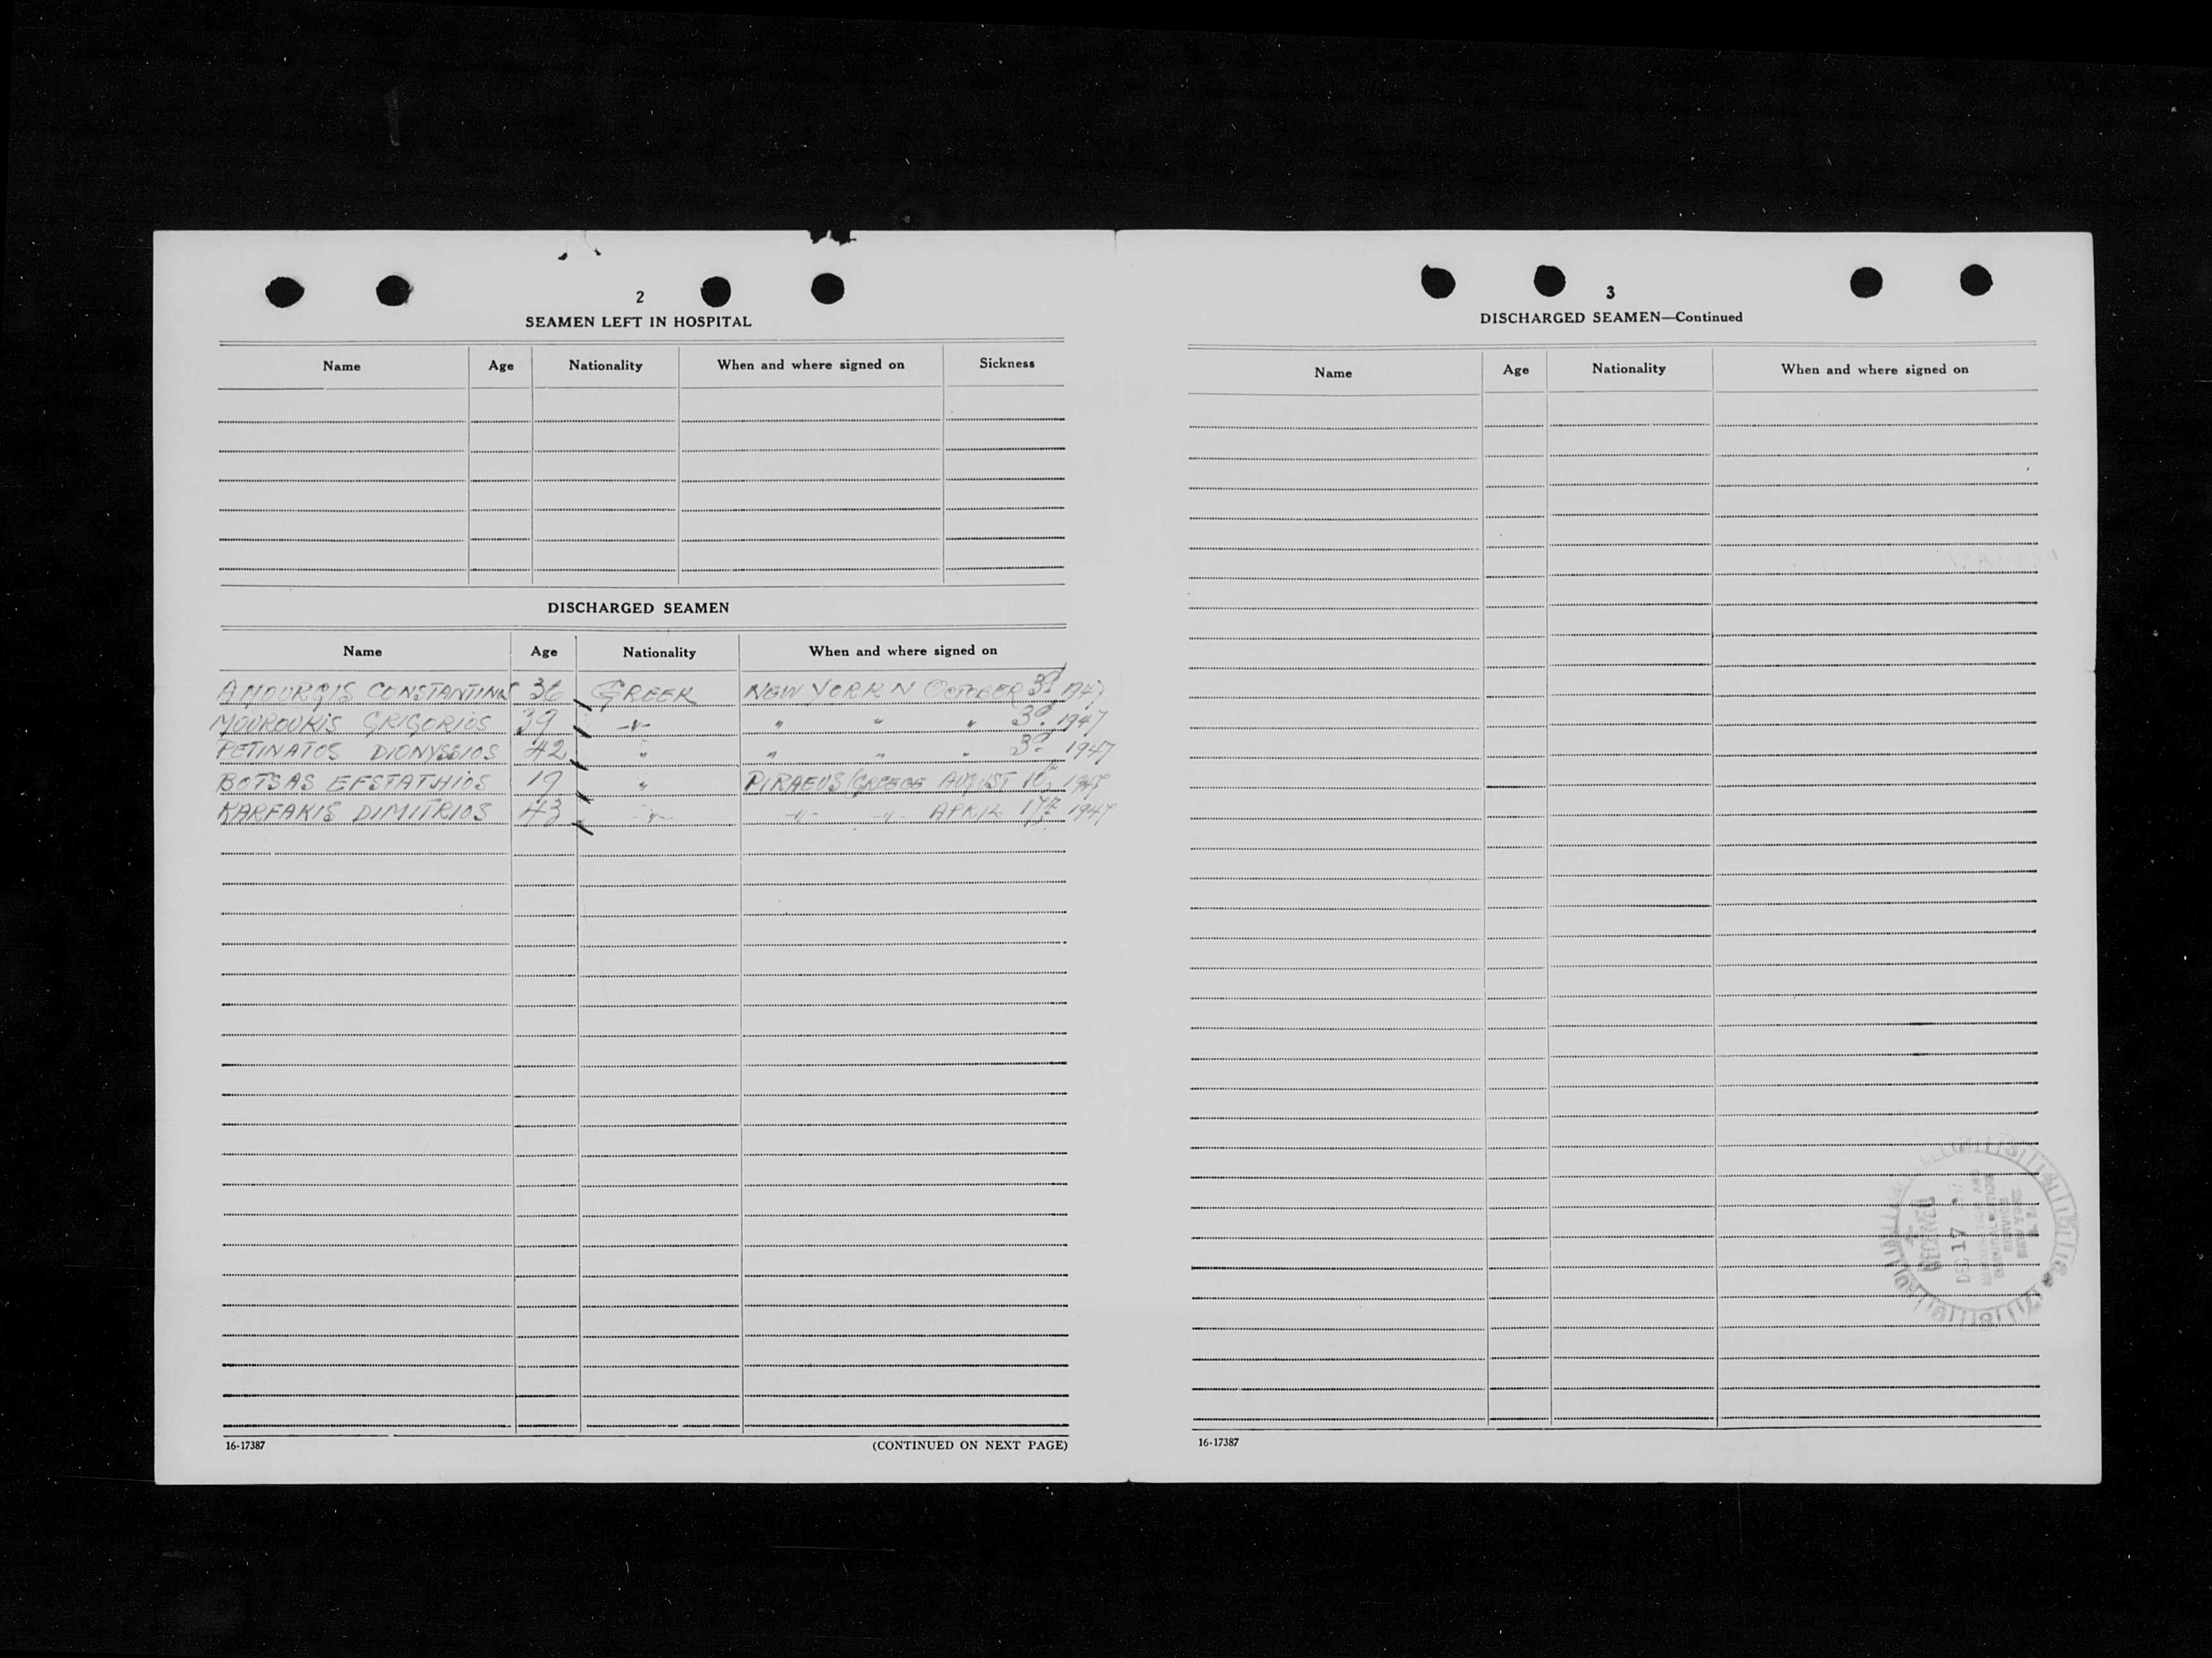 2
SEAMEN LEFT IN HOSPITAL
Name Age Nationality When and where signed on Sickness
DISCHARGED SEAMEN
Name Age Nationality When and where signed on
AMOURGIS CONSTANTINOS 36 GREEK NEW YORK N OCTOBER 3d 1947
MOUROUKIS GRIGORIOS 39 -"- " " " 3d. 1947
PETINATOS DIONYSSIOS 42 " " " " 3d 1947
BOTSAS EFSTATHIOS 19 " PIRAEUS/GREECE AUGUST 10th 1947
KARFAKIS DIMITRIOS 43 -"- -"- -"- APRIL 17th 1947
16-17387 (CONTINUED ON NEXT PAGE)
3
DISCHARGED SEAMEN—Continued
Name Age Nationality When and where signed on
RECEIVED
DEC 17
16-17387